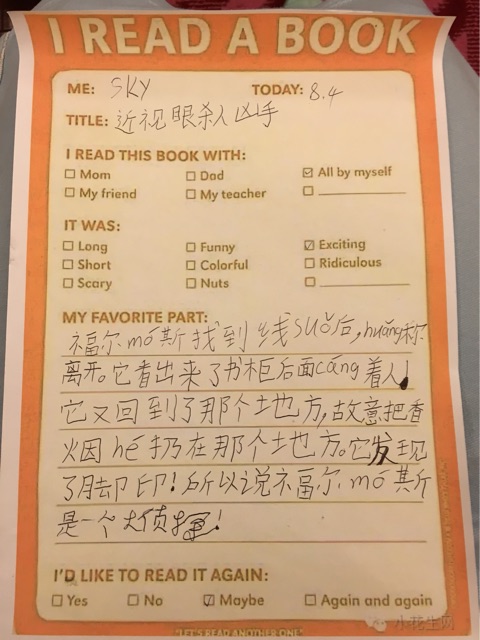 I READ A BOOK
ME: SKY TODAY: 8.4
TITLE: 近视眼杀人凶手
I READ THIS BOOK WITH:
☐ Mom ☐ Dad ☑ All by myself
☐ My friend ☐ My teacher ☐
IT WAS:
☐ Long ☐ Funny ☑ Exciting
☐ Short ☐ Colorful ☐ Ridiculous
☐ Scary ☐ Nuts ☐
MY FAVORITE PART:
福尔mó斯找到线suǒ后,huǎng称
离开。它看出来了书柜后面cáng着人!
它又回到了那个地方,故意把香
烟hé扔在那个地方。它发现
了脚印!所以说福尔mó斯
是一个大侦探!
I'D LIKE TO READ IT AGAIN:
☐ Yes ☐ No ☑ Maybe ☐ Again and again
"LET'S READ ANOTHER ONE"
小花生网